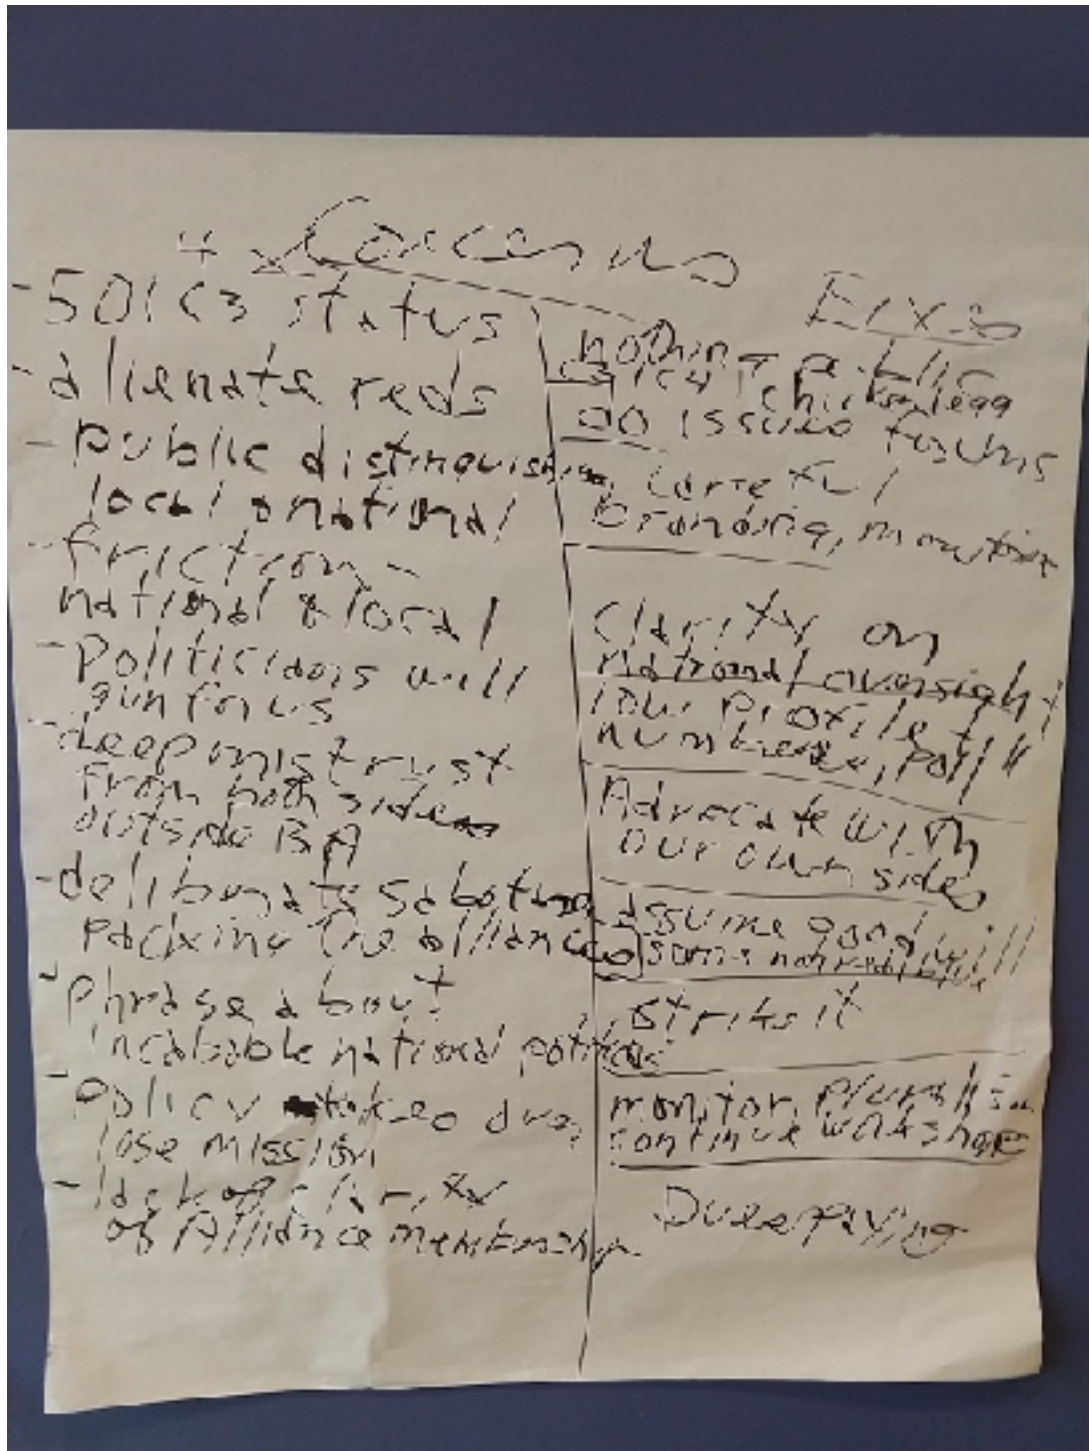 4 Concerns
- 501C3 status
- alienate reds
- public distinguishing
local & national
- friction -
national & local
- Politicians will
gun for us
- deep mistrust
from both sides
outside BA
- deliberate sabotage
packing the alliances
- phrase about
incapable national politics
- Policy takes over
lose mission
- lack of clarity
of Alliance membership
Fixes
nothing public
C3/C4
do issues forums
careful
branding, monitor
Clarity on
national oversight
low profile +
numbers, poll
Advocate with
our own sides
assume good will
strike it
monitor,
continue workshops
Dues paying